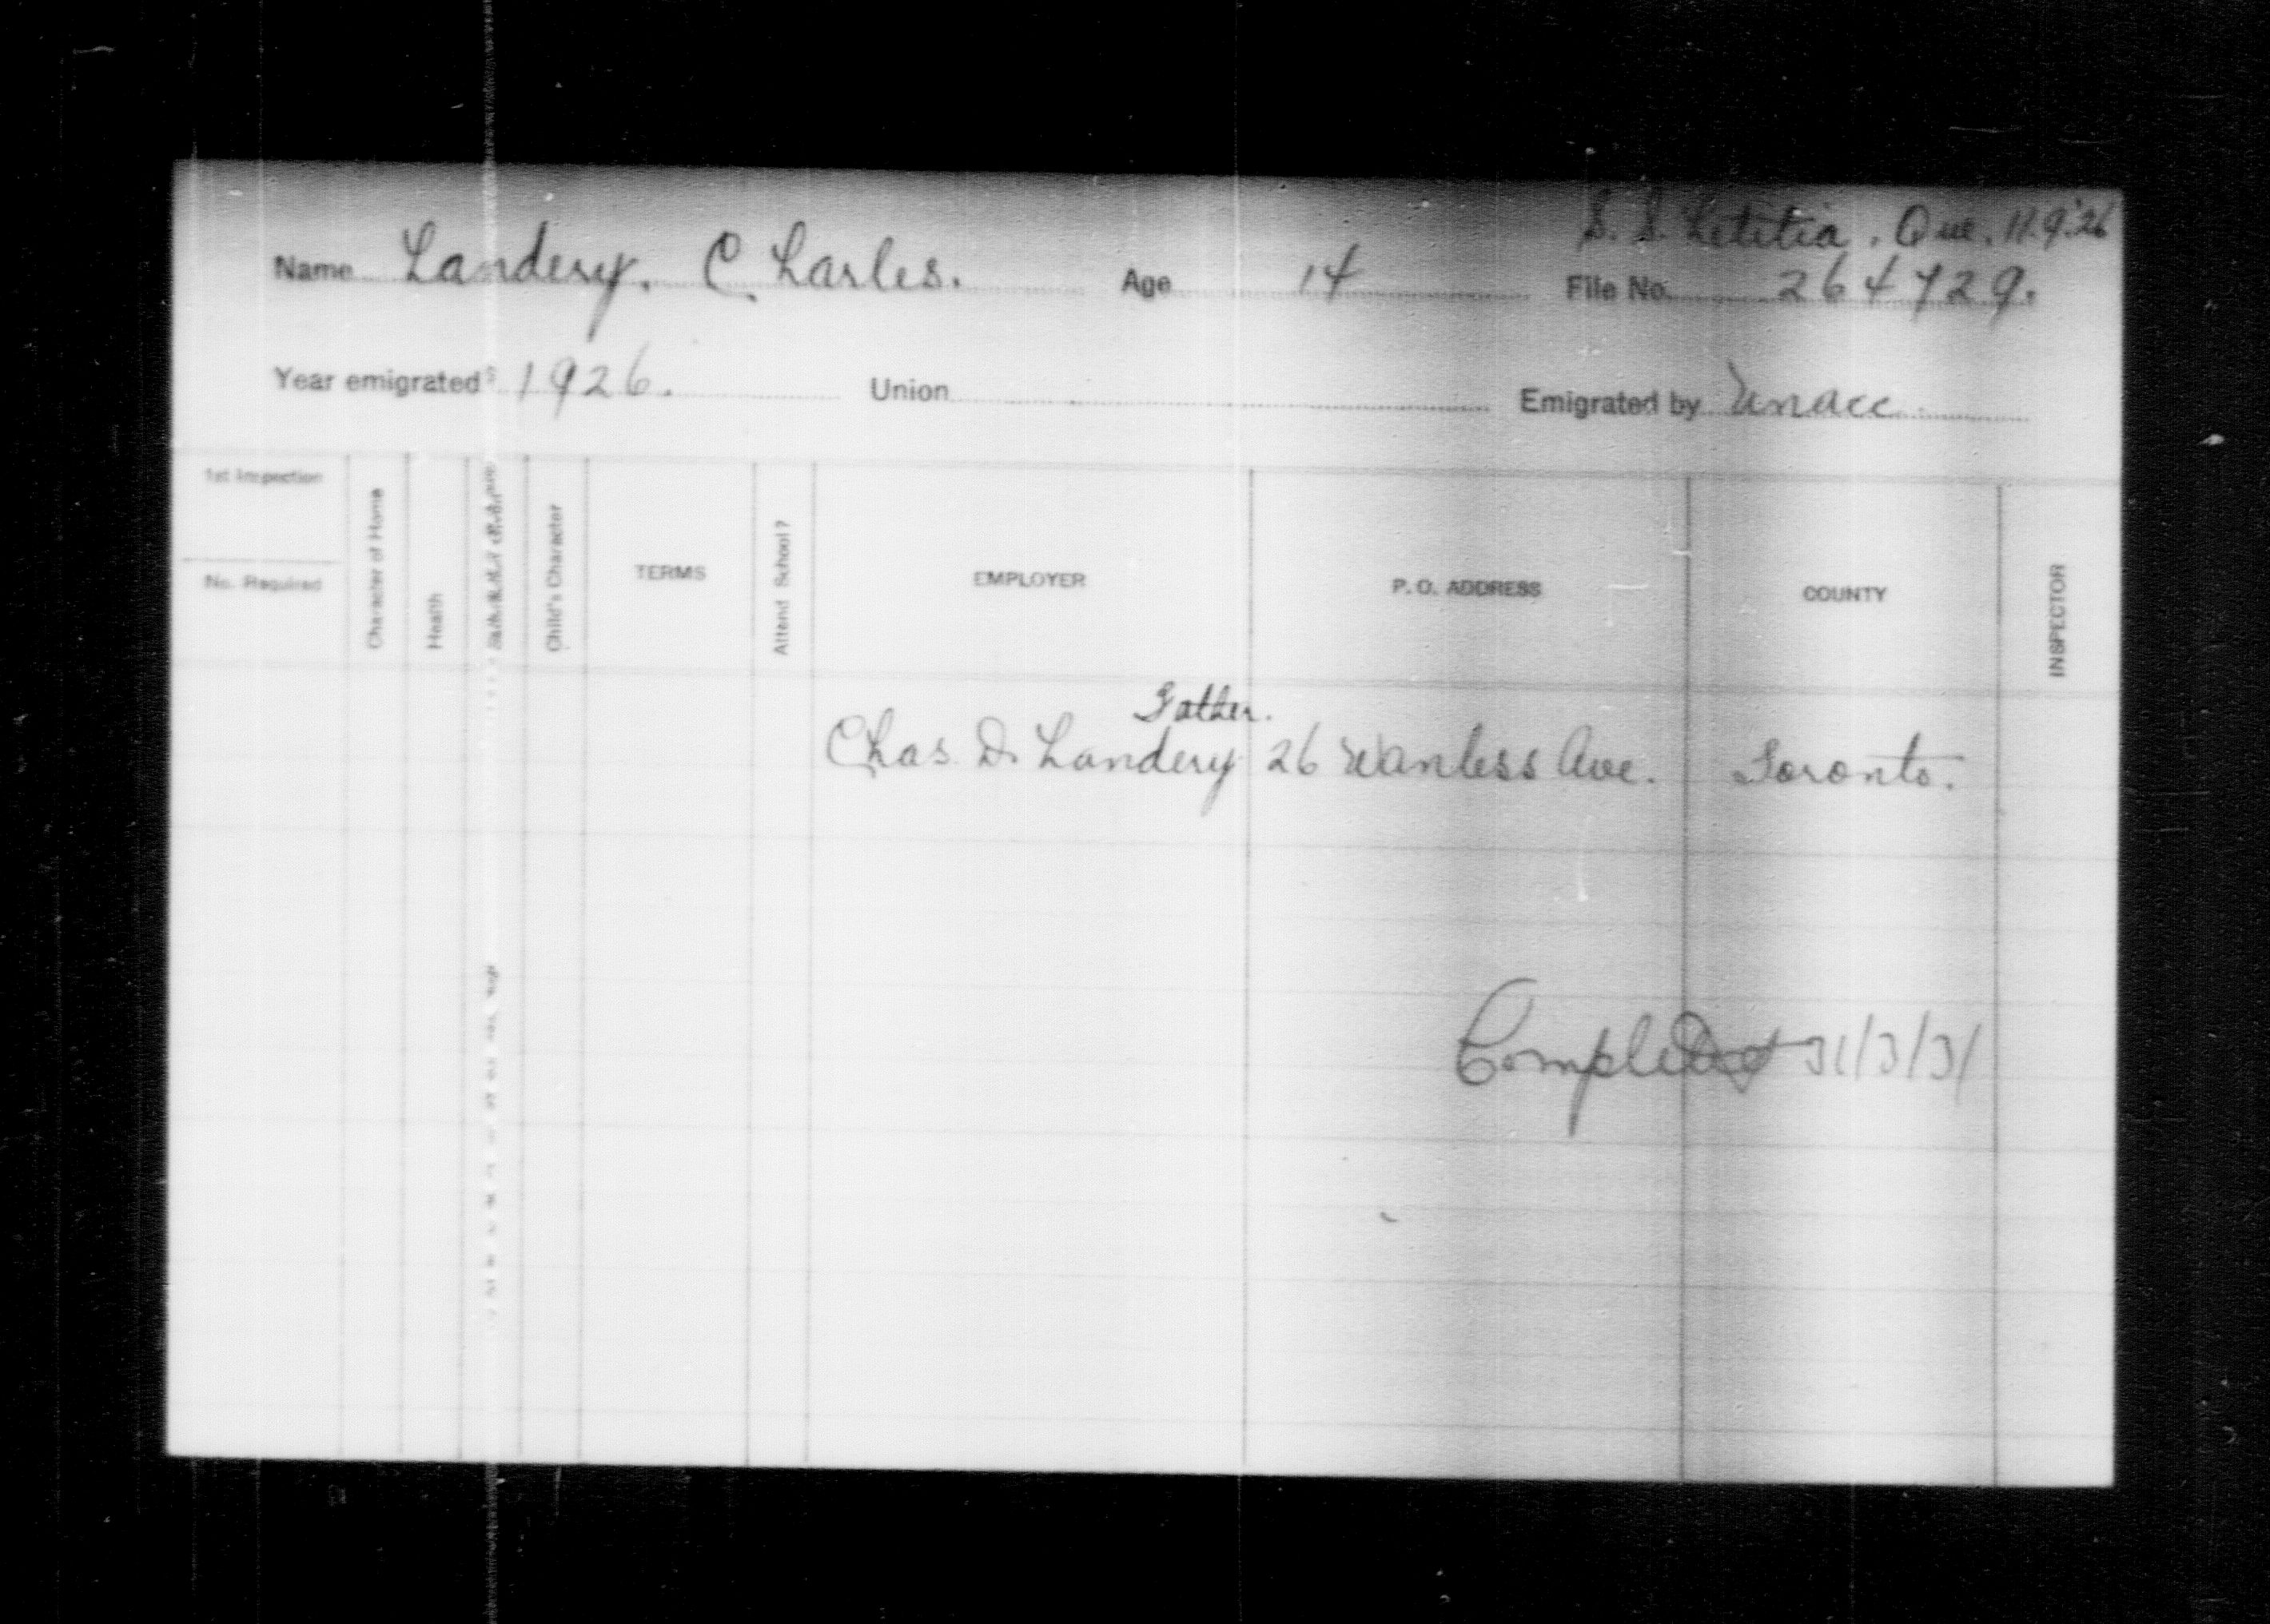 S. S. Letitia. Que. 11.9.26
Name Landery. Charles. Age 14 File No. 264729.
Year emigrated 1926. Union Emigrated by Unacc.
1st Inspection
No. Required
Character of Home
Health
Child's Character
TERMS
Attend School?
EMPLOYER
P. O. ADDRESS
COUNTY
INSPECTOR
Father.
Chas. D. Landery 26 Wanless Ave. Toronto.
Completed 31/3/31